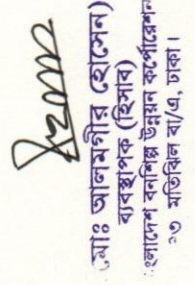 মোঃ আলমগীর হোসেন)
ব্যবস্থাপক (হিসাব)
বাংলাদেশ বনশিল্প উন্নয়ন কর্পোরেশন
৭৩ মতিঝিল বা/এ, ঢাকা।